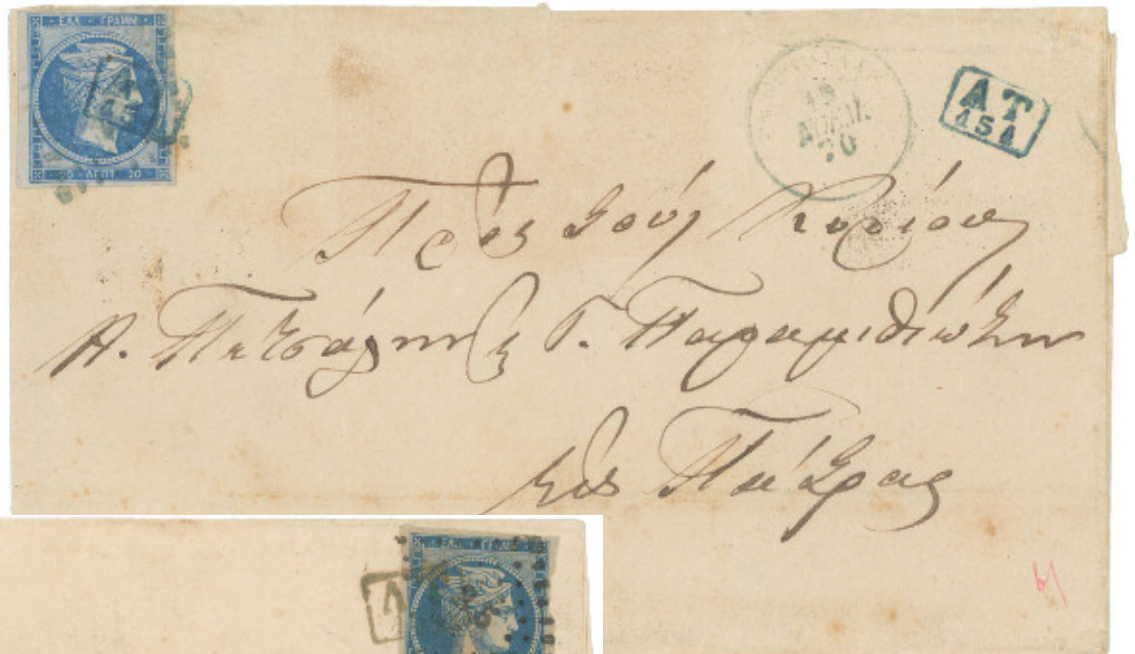 ΕΛΛ · ΓΡΑΜΜ ·
20 · ΛΕΠΤ · 20
19
70
Α Τ
151
Πρὸς τοὺς Κυρίους
Α. Πετσάλην & Γ. Παραμυθιώτην
εἰς Πάτρας
ΕΛΛ · ΓΡΑΜΜ